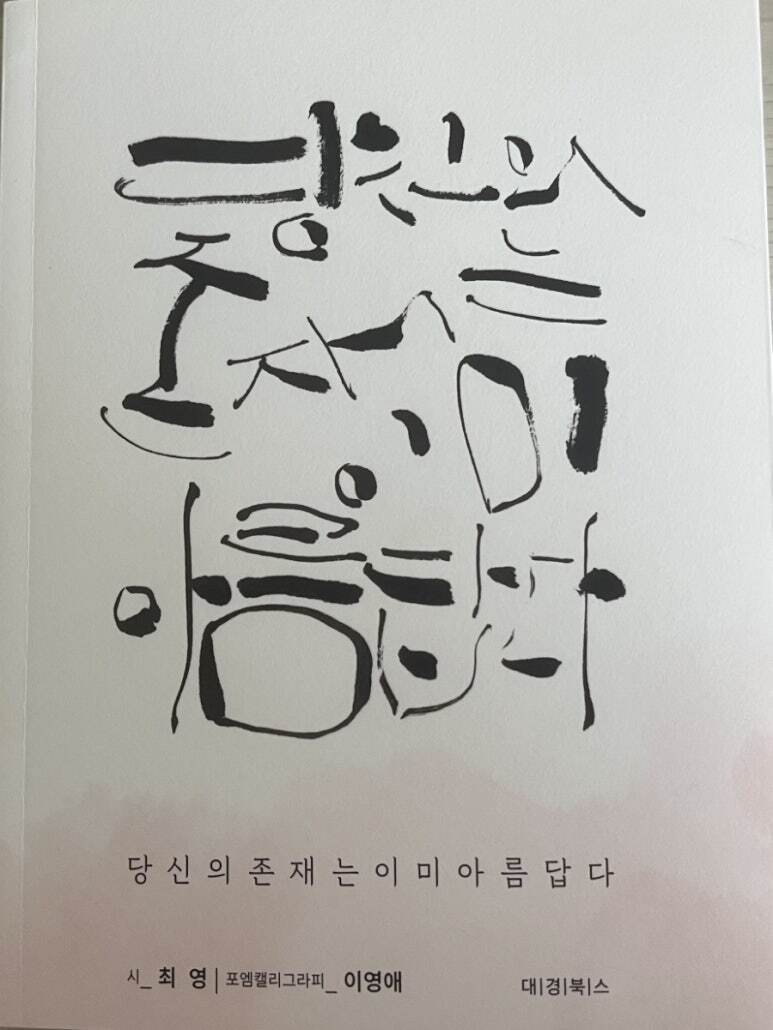 당신의
존재는
이미
아름답다
당신의존재는이미아름답다
시_ 최 영 | 포엠캘리그라피_ 이영애
대|경|북|스